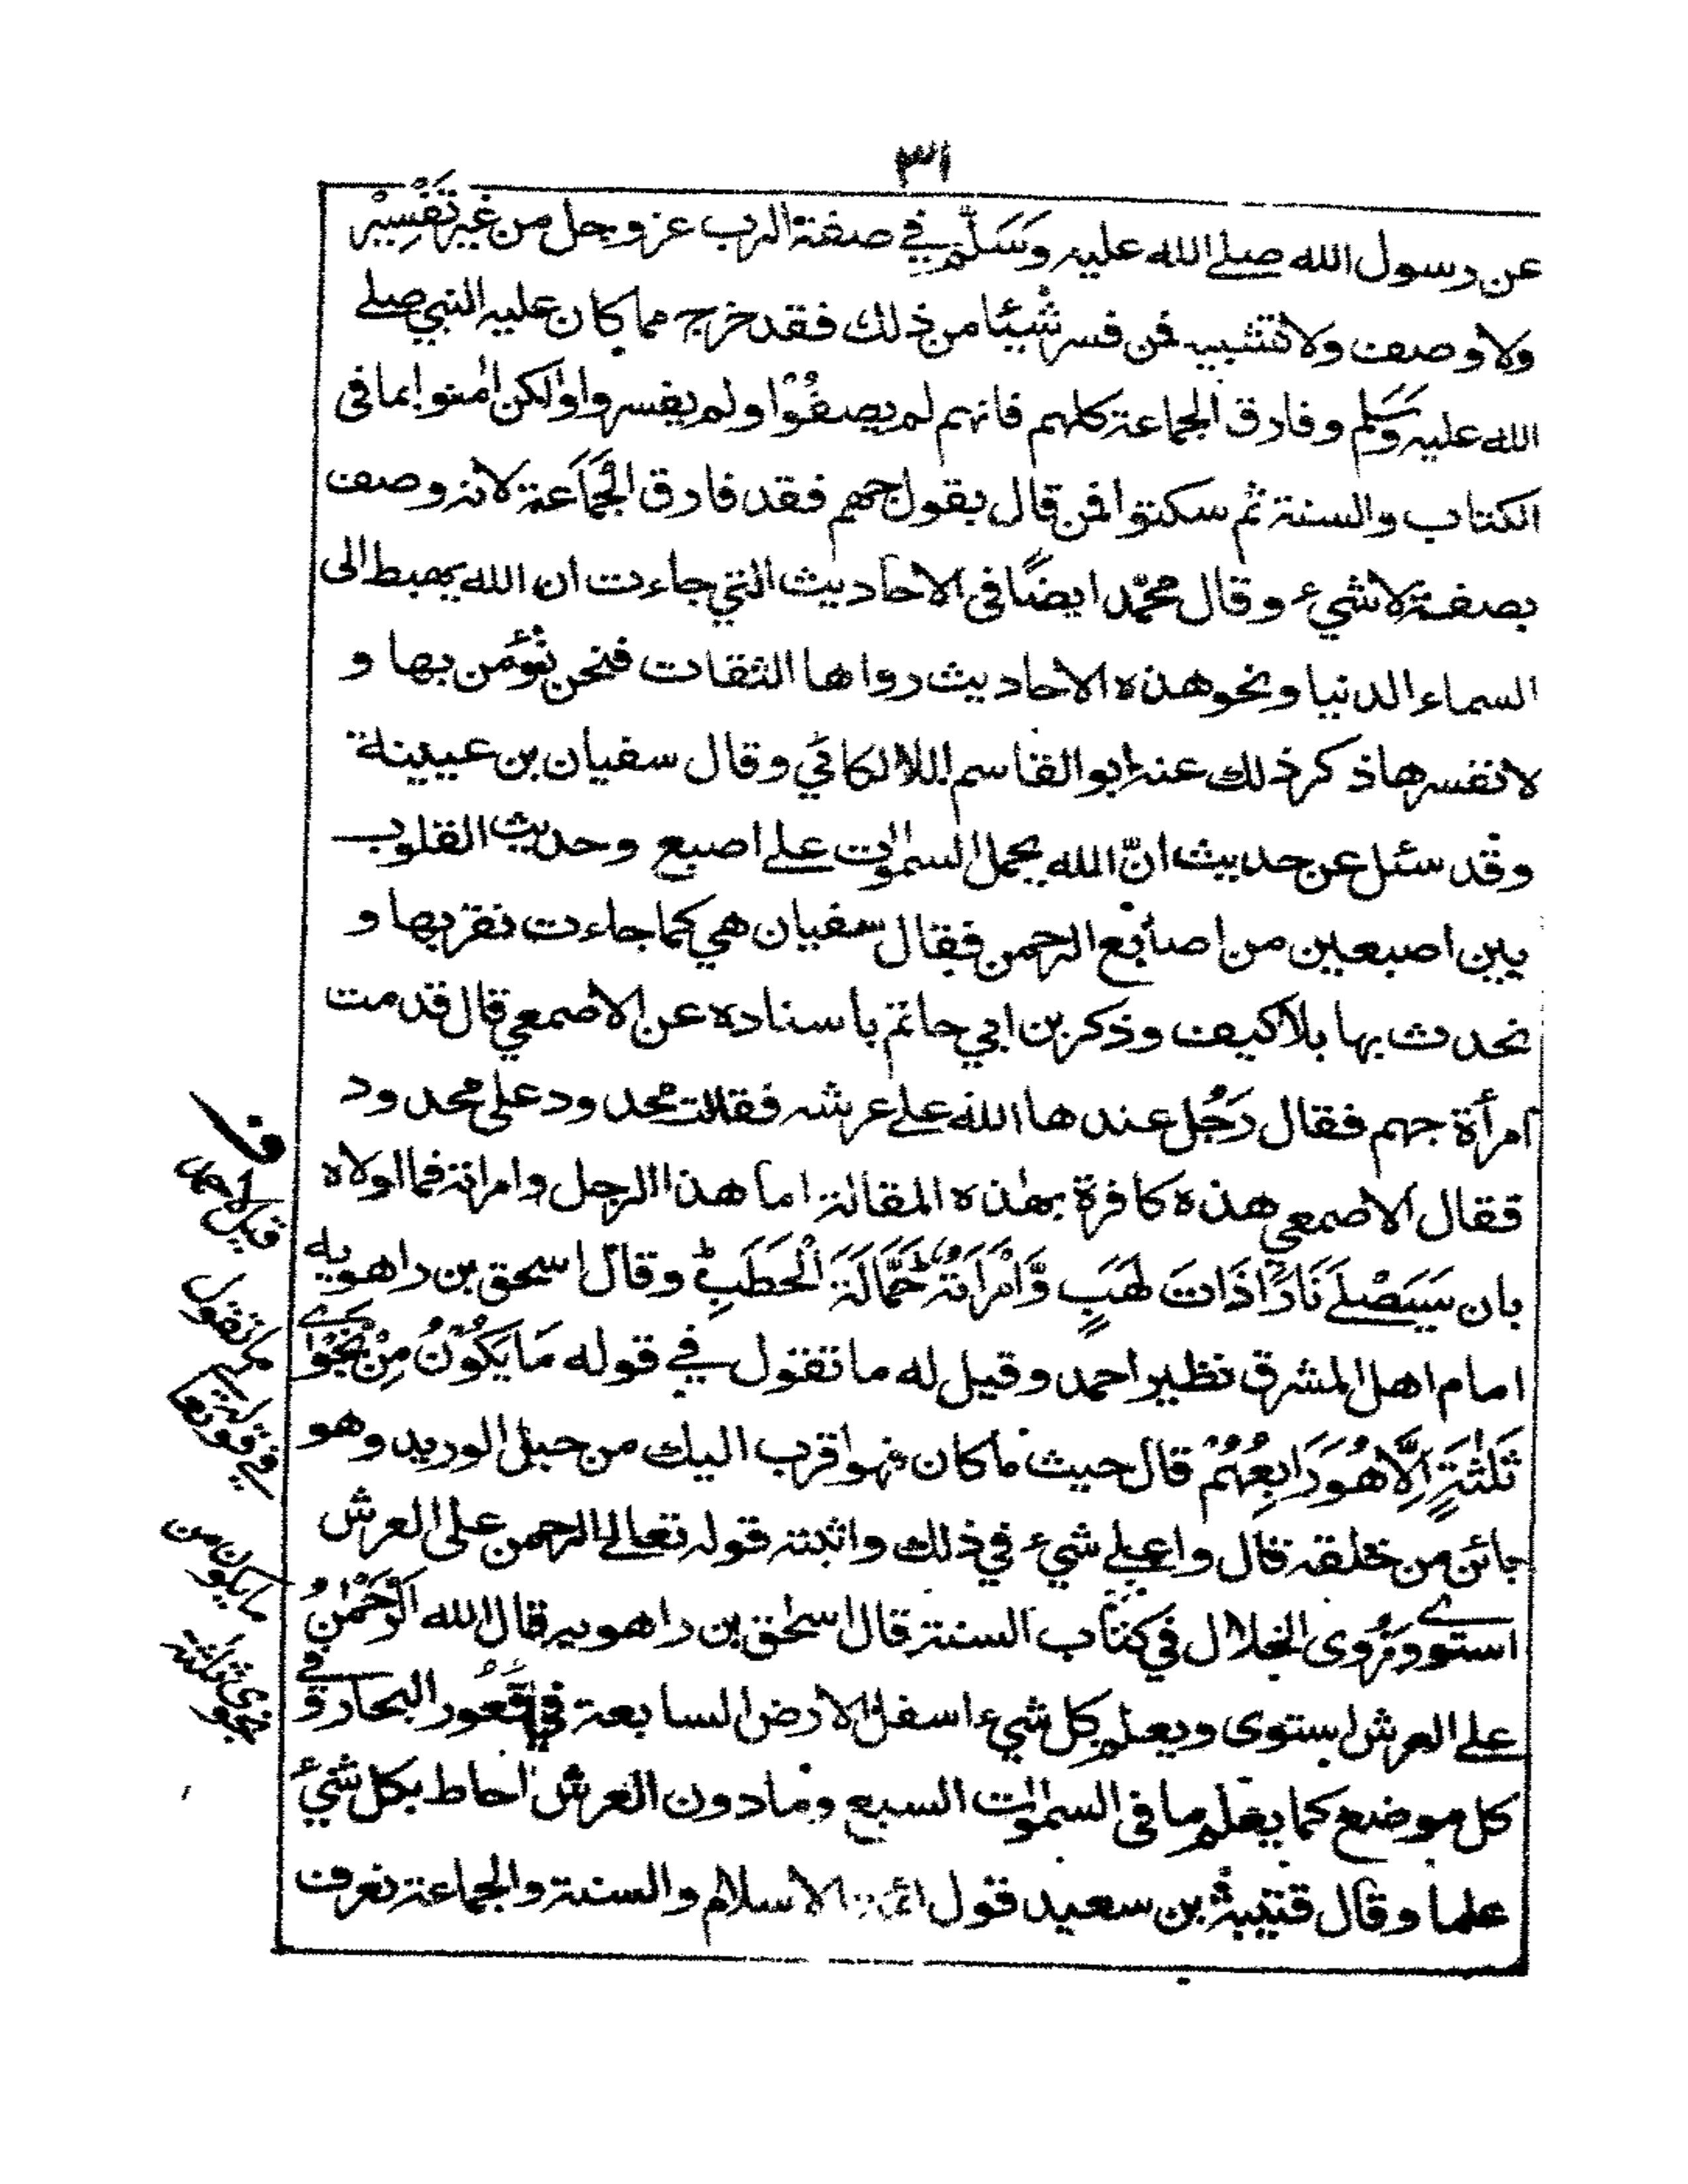 ٣١
عن رسول الله صلے الله عليه وَسَلَّم في صفة الرب عز وجل من غير تَفْسِيْر
ولا وصف ولا تشبيه فمن فسر شيئا من ذلك فقد خرج مما كان عليه النبي صلے
الله عليه وَسَلم وفارق الجماعة كلهم فانهم لم يصفُوْا ولم يفسروا ولكن اٰمنوا بما فى
الكتاب والسنة ثم سكتوا فمن قال بقول جهم فقد فارق الْجَمَاعَة لانه وصف
بصفة لا شيء وقال محمّد ايضًا فى الاحاديث التي جاءت ان الله يهبط الى
السماء الدنيا ونحو هذه الاحاديث رواها الثقات فنحن نؤمن بها و
لا نفسرها ذكر ذلك عنه ابو القاسم اللالكائي وقال سفيان بن عيينة
وقد سئل عن حديث انّ الله يحمل السمٰوات علے اصبع وحديث القلوب
بين اصبعين من اصابع الرحمن فقال سفيان هي كما جاءت نقر بها و
نحدث بها بلا كيف وذكر بن ابي حاتم باسناده عن الاصمعي قال قدمت
امرأة جهم فقال رَجُل عندها الله علے عرشه فقالت محدود على محدود
فقال الاصمعي هذه كافرة بهٰذه المقالة اما هذا الرجل وامراته فما اولاه
بان سَيَصْلٰے نَارًا ذَاتَ لَهَبٍ وَّامْرَاَتُهٗ حَمَّالَةَ الْحَطَبِ وقال اسحق بن راهويه
امام اهل المشرق نظير احمد وقيل له ما تقول في قوله مَا يَكُوْنُ مِنْ نَّجْوٰے
ثَلٰثَةٍ اِلَّا هُوَ رَابِعُهُمْ قال حيث ما كان فهو اقرب اليك من حبل الوريد وهو
بائن من خلقه قال واعلے شيء في ذلك واثبته قوله تعالے الرحمن على العرش
استوے وروى الخلال في كتاب السنة قال اسحٰق بن راهويه قال الله الرَّحْمٰنُ
علے العرش استوى ويعلم كل شيء اسفل الارض السابعة في قُعُور البحار وفي
كل موضع كما يعلم ما فى السمٰوات السبع وما دون العرش احاط بكل شيء
علما وقال قتيبة بن سعيد قول ائمة الاسلام والسنة والجماعة نعرف
ما يكون من
نجوى ثلثة